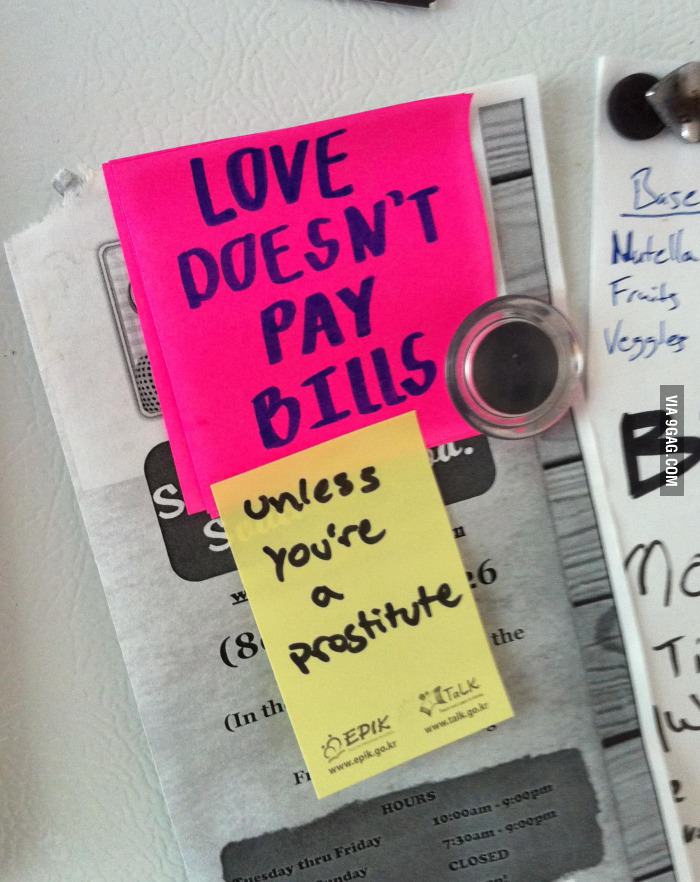 LOVE
DOESN'T
PAY
BILLS
unless
you're
a
prostitute
EPIK
www.epik.go.kr
TaLK
www.talk.go.kr
(In th
the
HOURS
Tuesday thru Friday 10:00am - 9:00pm
7:30am - 9:00pm
CLOSED
Base
Nutella
Fruits
Veggies
VIA 9GAG.COM